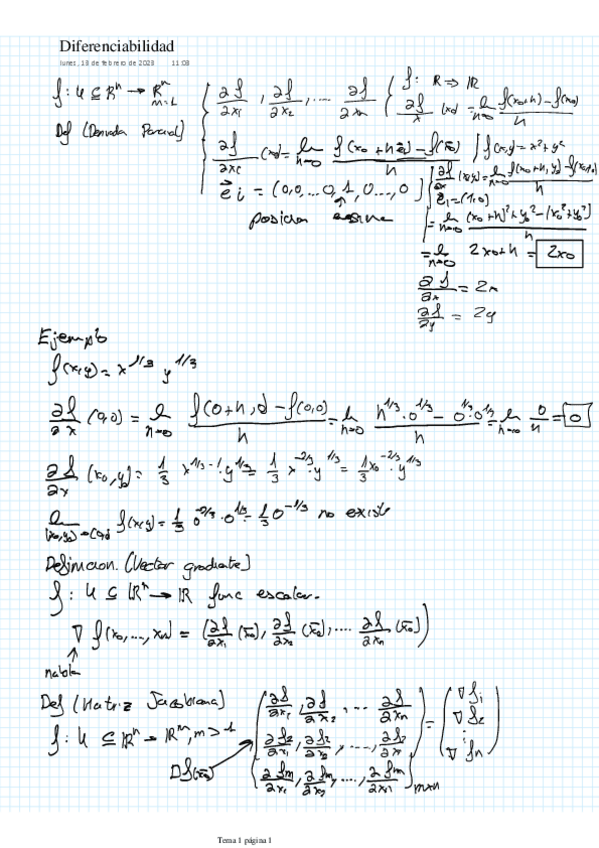 Diferenciabilidad
lunes, 13 de febrero de 2023 11:08
f: U ⊆ ℝⁿ → ℝᵐ m=1
Def (Derivada Parcial)
{ ∂f/∂x₁, ∂f/∂x₂, ... ∂f/∂xₙ
∂f/∂xᵢ (x₀) = lim h→0 (f(x₀ + h e⃗) − f(x̄₀))/h
e⃗ᵢ = (0,0,...0,1,0...,0)
posicion
f: ℝ → ℝ
∂f/x (x₀) = lim h→0 (f(x₀+h) − f(x₀))/h
f(x,y) = x² + y²
∂f/∂x (x₀,y₀) = lim h→0 (f(x₀+h, y₀) − f(x₀,y₀))/h
e⃗₁ = (1,0)
= lim h→0 ((x₀+h)² + y₀² − (x₀² + y₀²))/h
= lim h→0 2x₀+h = 2x₀
∂f/∂x = 2x
∂f/∂y = 2y
Ejemplo
f(x,y) = x^1/3 y^1/3
∂f/∂x (0,0) = lim h→0 (f(0+h, 0) − f(0,0))/h = lim h→0 (h^1/3 · 0^1/3 − 0^1/3 · 0^1/3)/h = lim h→0 0/h = 0
∂f/∂x (x₀,y₀) = 1/3 x^1/3−1 · y^1/3 = 1/3 x^−2/3 · y^1/3 = 1/3 x₀^−2/3 · y^1/3
lim (x₀,y₀)→(0,0) f(x,y) = 1/3 0^−2/3 · 0^1/3 = 1/3 0^−1/3 no existe
Definicion. (Vector gradiente)
f: U ⊆ ℝⁿ → ℝ func escalar.
∇ f(x₀,...,xₙ) = (∂f/∂x₁ (x̄₀), ∂f/∂x₂ (x̄₀), .... ∂f/∂xₙ (x̄₀))
nabla
Def (Matriz Jacobiana)
f: U ⊆ ℝⁿ → ℝᵐ, m > 1
Df(x̄₀)
∂f/∂x₁, ∂f/∂x₂, ... ∂f/∂xₙ
∂f₂/∂x₁, ∂f₂/∂x₂, ..., ∂f₂/∂x
∂fm/∂x₁, ∂fm/∂x₂, ..., ∂fm/∂xₙ
m×n
=
∇ f₁
∇ f₂
⋮
∇ fₙ
Tema 1 página 1